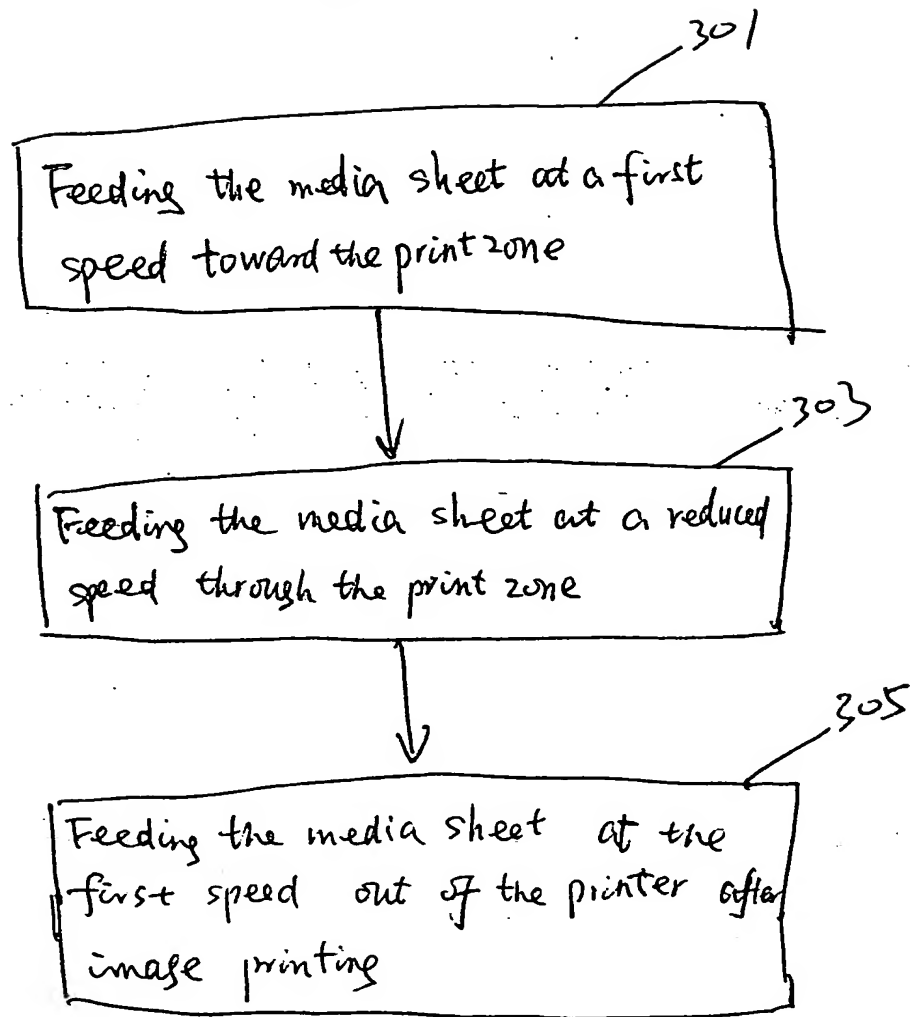 301
Feeding the media sheet at a first
speed toward the print zone
303
Feeding the media sheet at a reduced
speed through the print zone
305
Feeding the media sheet at the
first speed out of the printer after
image printing